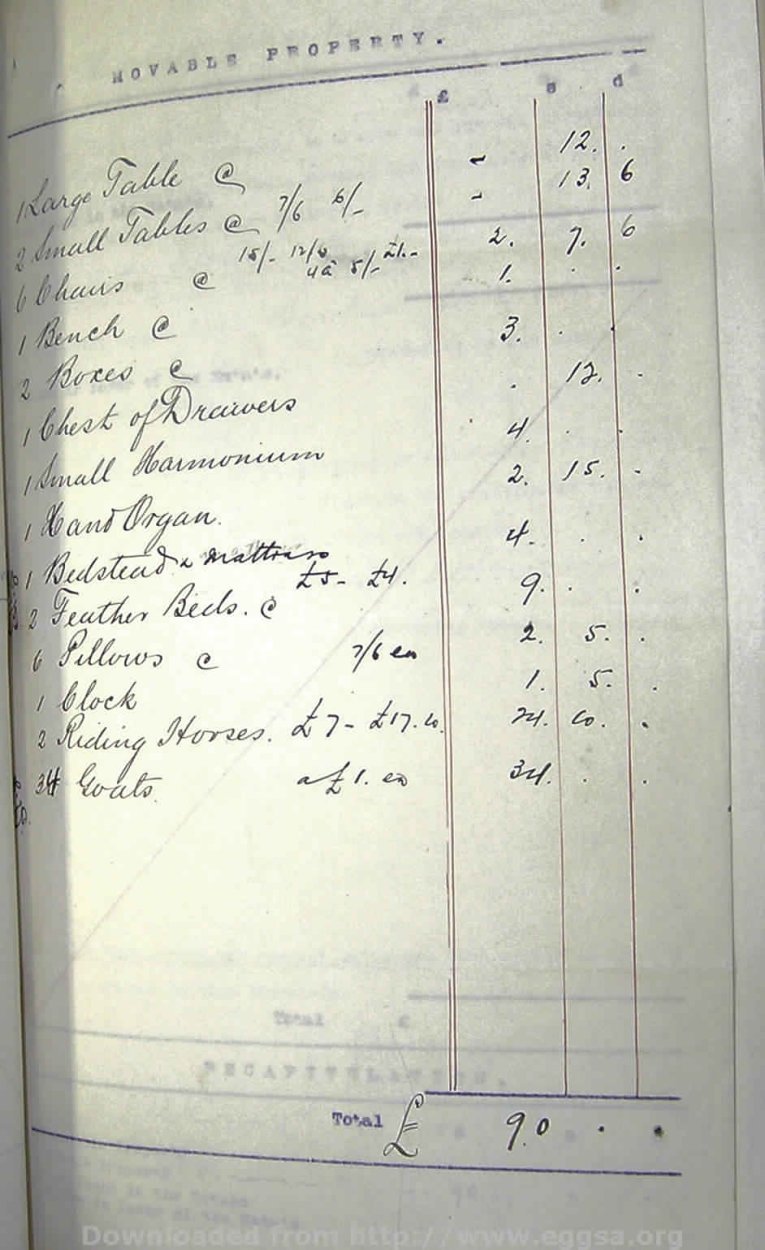 MOVABLE PROPERTY.
£ s d
1 Large Table @ - 12. .
2 Small Tables @ 7/6 6/- - 13. 6
6 Chairs @ 15/- 12/6 4 a 5/- £1.- 2. 7. 6
1 Bench @ 1. . .
2 Boxes @ 3. . .
1 Chest of Drawers . 12. .
1 Small Harmonium 4. . .
1 Hand Organ. 2. 15. .
1 Bedstead & Mattrass 4. . .
2 Feather Beds. @ £5- £4. 9. . .
6 Pillows @ 7/6 ea 2. 5. .
1 Clock 1. 5. .
2 Riding Horses. £7- £17.10. 24. 10. .
34 Goats. a £1. ea 34. . .
Total £
RECAPITULATION.
Total £ 90 . .
Downloaded from http://www.eggsa.org